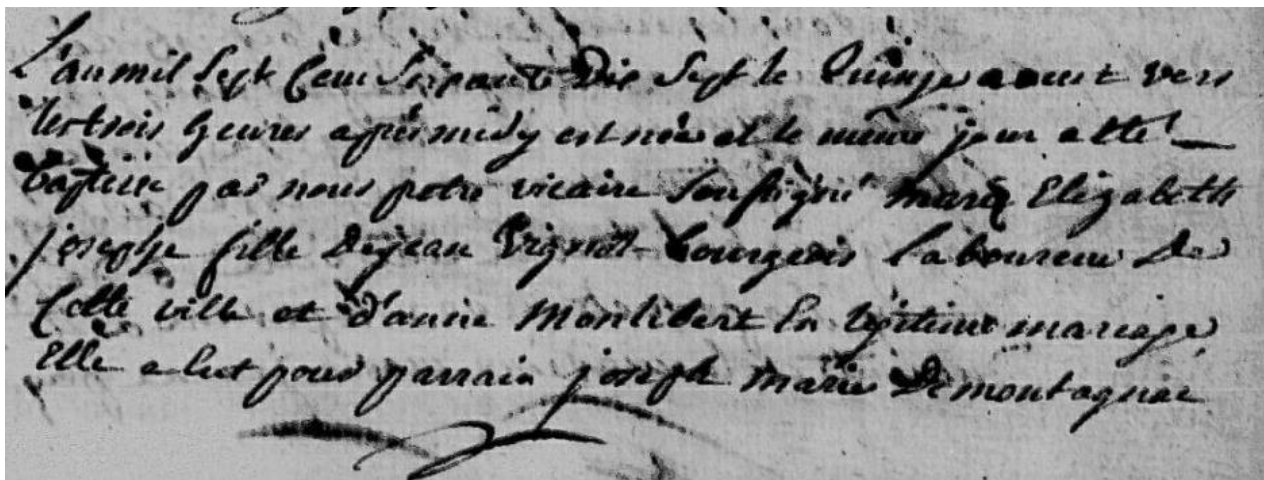 L'an mil Sept Cent Soixante Dix Sept le Quinze aoust vers
les trois heures après midy est née et le même jour a été
baptisée par nous pretre vicaire soussigné marie Elizabeth
josephe fille de jean Vignol bourgeois laboureur de
Cette ville et d'anne Monlibert En légitime mariage
Elle a eut pour parrain joseph marie De montagnac